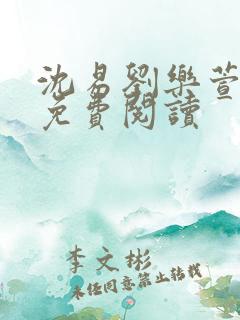 沈易劉樂萱
免費閱讀
李文彬
未经同意禁止转载